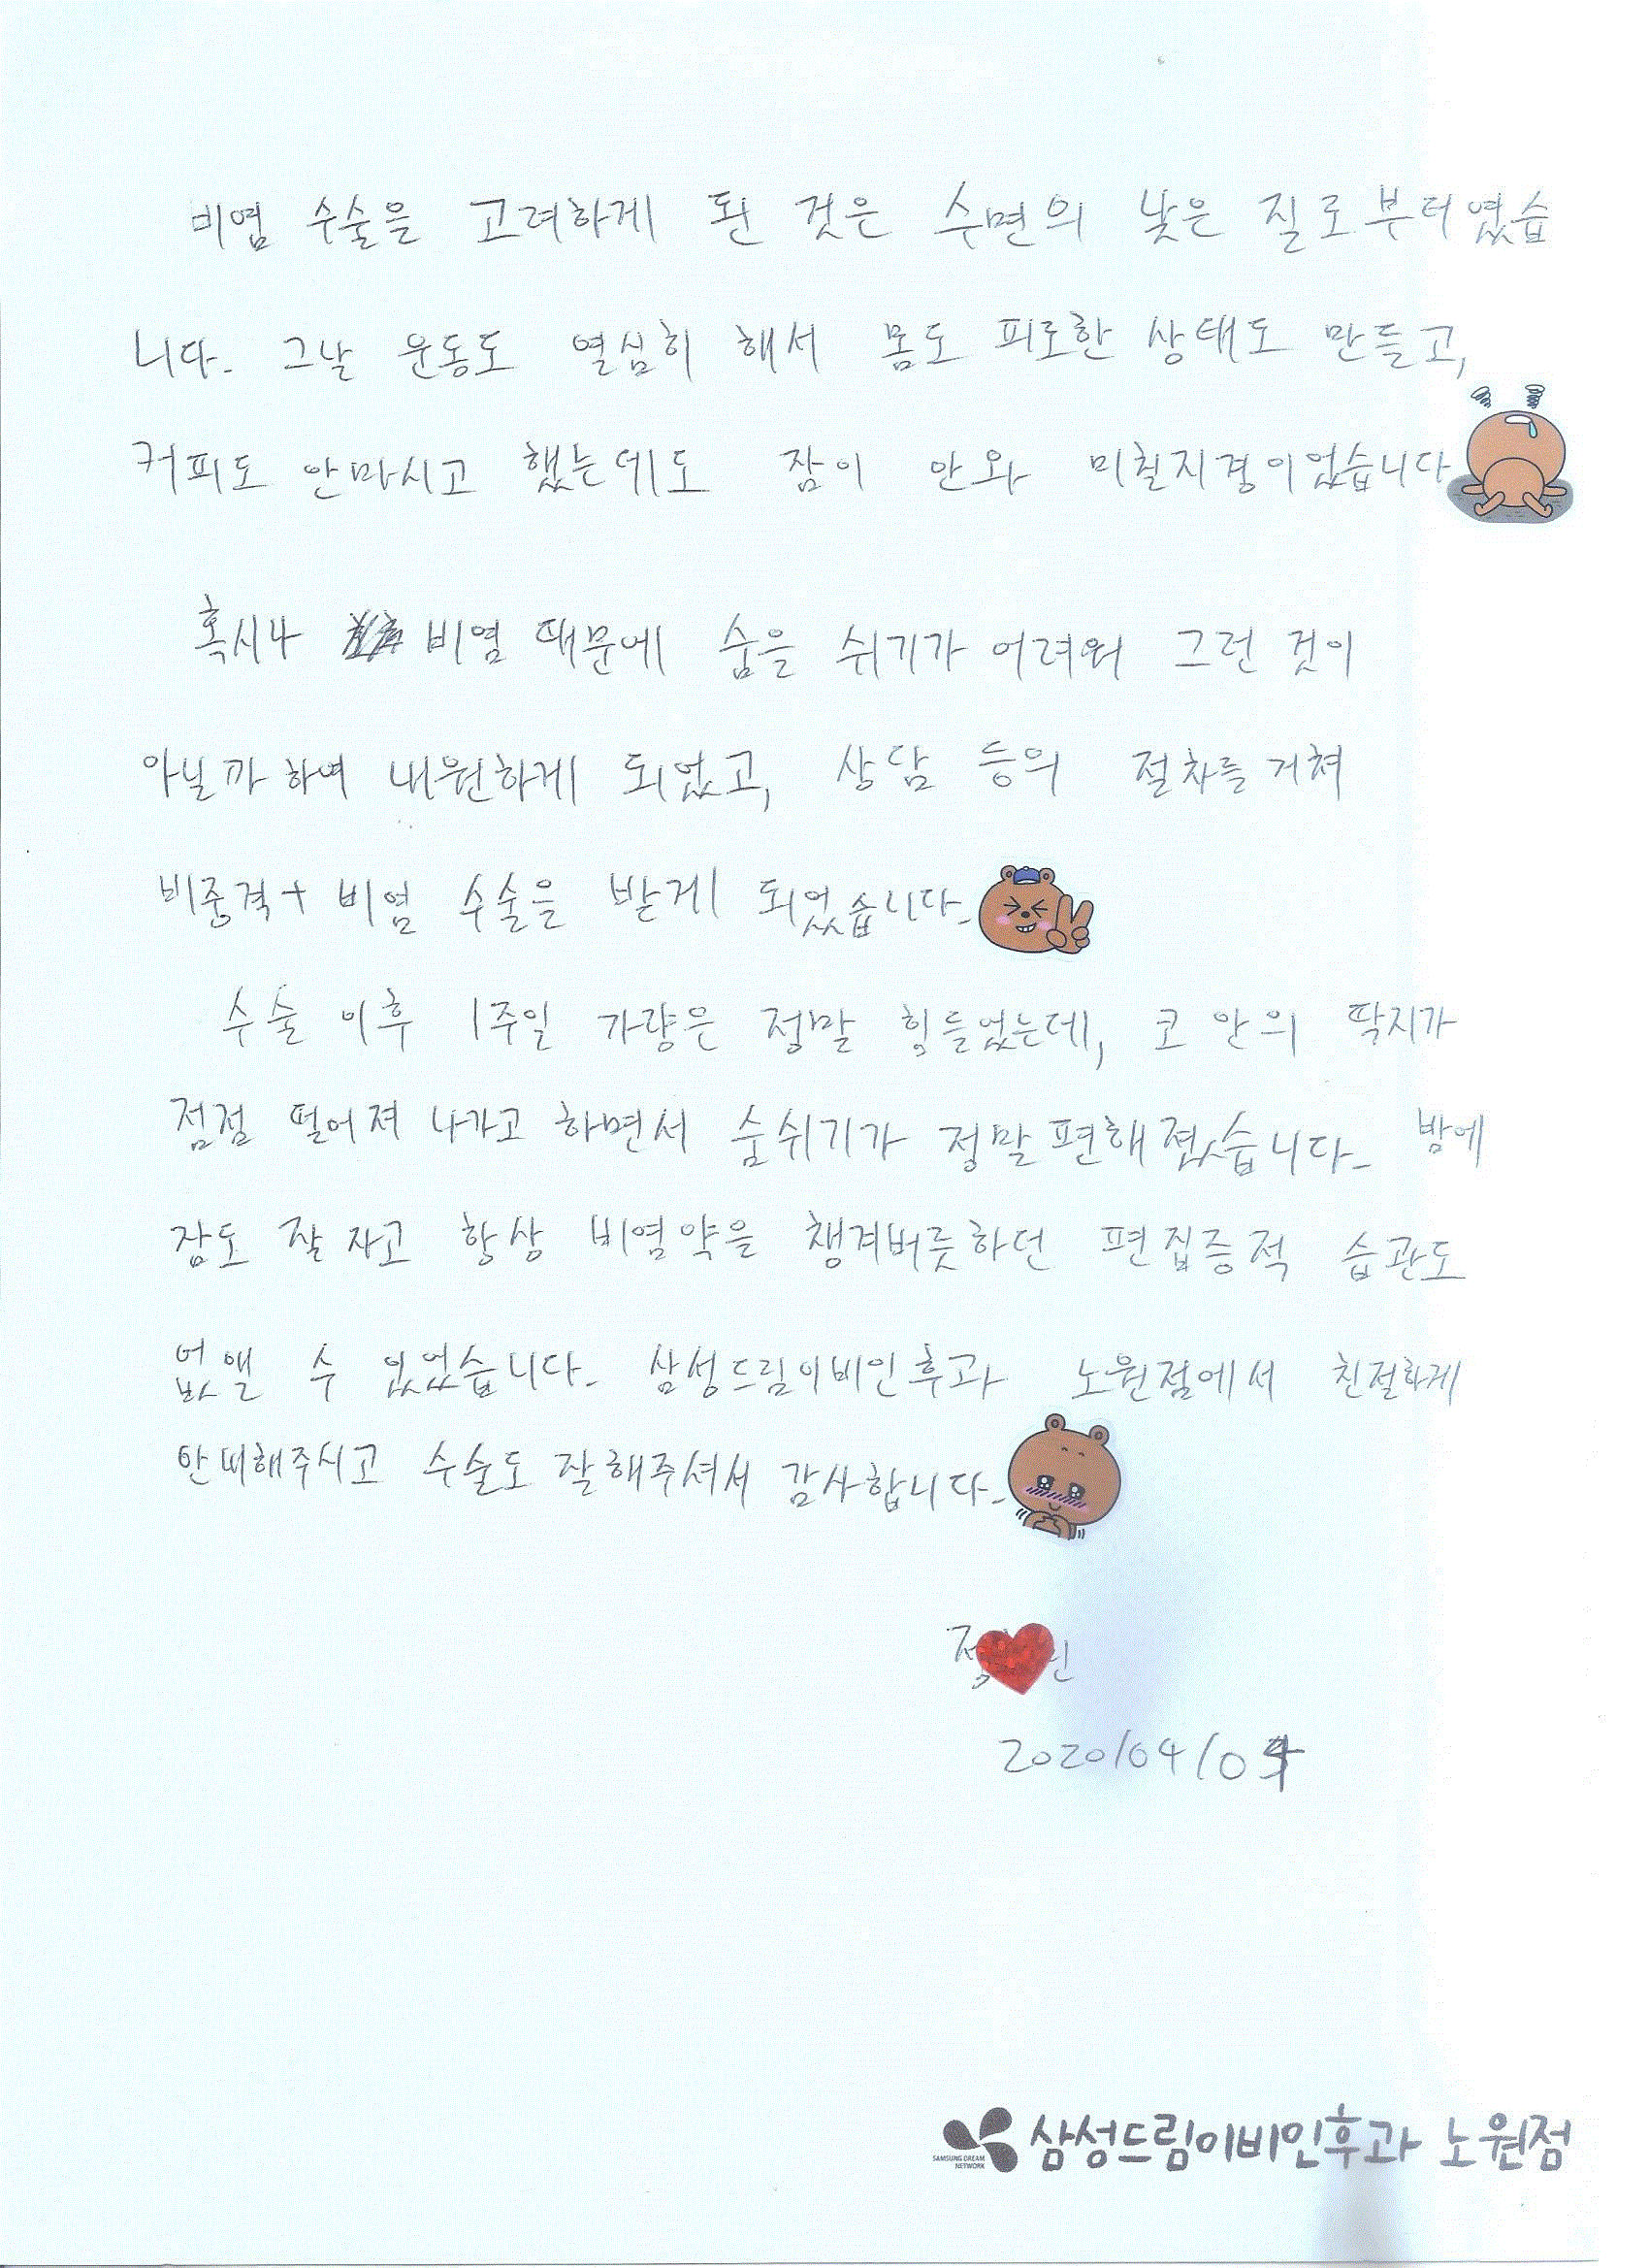 비염 수술을 고려하게 된 것은 수면의 낮은 질로부터였습
니다. 그날 운동도 열심히 해서 몸도 피로한 상태도 만들고,
커피도 안마시고 했는데도 잠이 안와 미칠지경이었습니다
혹시나 비염 때문에 숨을 쉬기가 어려워 그런 것이
아닐까 하여 내원하게 되었고, 상담 등의 절차를 거쳐
비중격+ 비염 수술을 받게 되었습니다.
수술 이후 1주일 가량은 정말 힘들었는데, 코 안의 딱지가
점점 떨어져 나가고 하면서 숨쉬기가 정말 편해졌습니다. 밤에
잠도 잘 자고 항상 비염약을 챙겨버릇하던 편집증적 습관도
없앨 수 있었습니다. 삼성드림이비인후과 노원점에서 친절하게
안내해주시고 수술도 잘해주셔서 감사합니다.
정
2020/04/0
SAMSUNG DREAM
NETWORK
삼성드림이비인후과 노원점